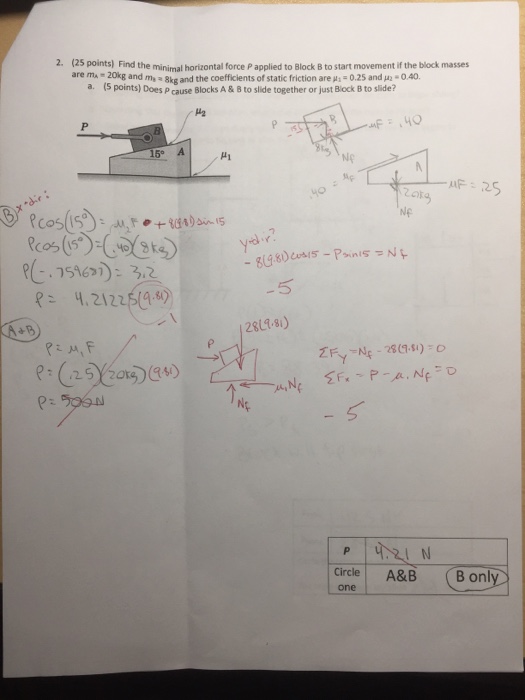 2. (25 points) Find the minimal horizontal force P applied to Block B to start movement if the block masses
are mA = 20kg and mB = 8kg and the coefficients of static friction are μ1 = 0.25 and μ2 = 0.40.
a. (5 points) Does P cause Blocks A & B to slide together or just Block B to slide?
P
B
μ2
15° A
μ1
P
B
μF = .40
8kg
NF
A
20kg
μF = .25
NF
B x-dir:
Pcos(15°) = μ2F + 8(9.81) sin 15
Pcos(15°) = (.40)(8kg)
P(-.759687) = 3.2
P = 4.21225(9.81)
-1
y-dir?
- 8(9.81) cos15 - Psin15 = Nf
-5
A+B
P = μ1F
P = (.25)(20kg)(9.81)
P =
28(9.81)
P
μ1Nf
Nf
ΣFy = Nf - 28(9.81) = 0
ΣFx = P - μ1Nf = 0
-5
P 4.21 N
Circle one A&B B only